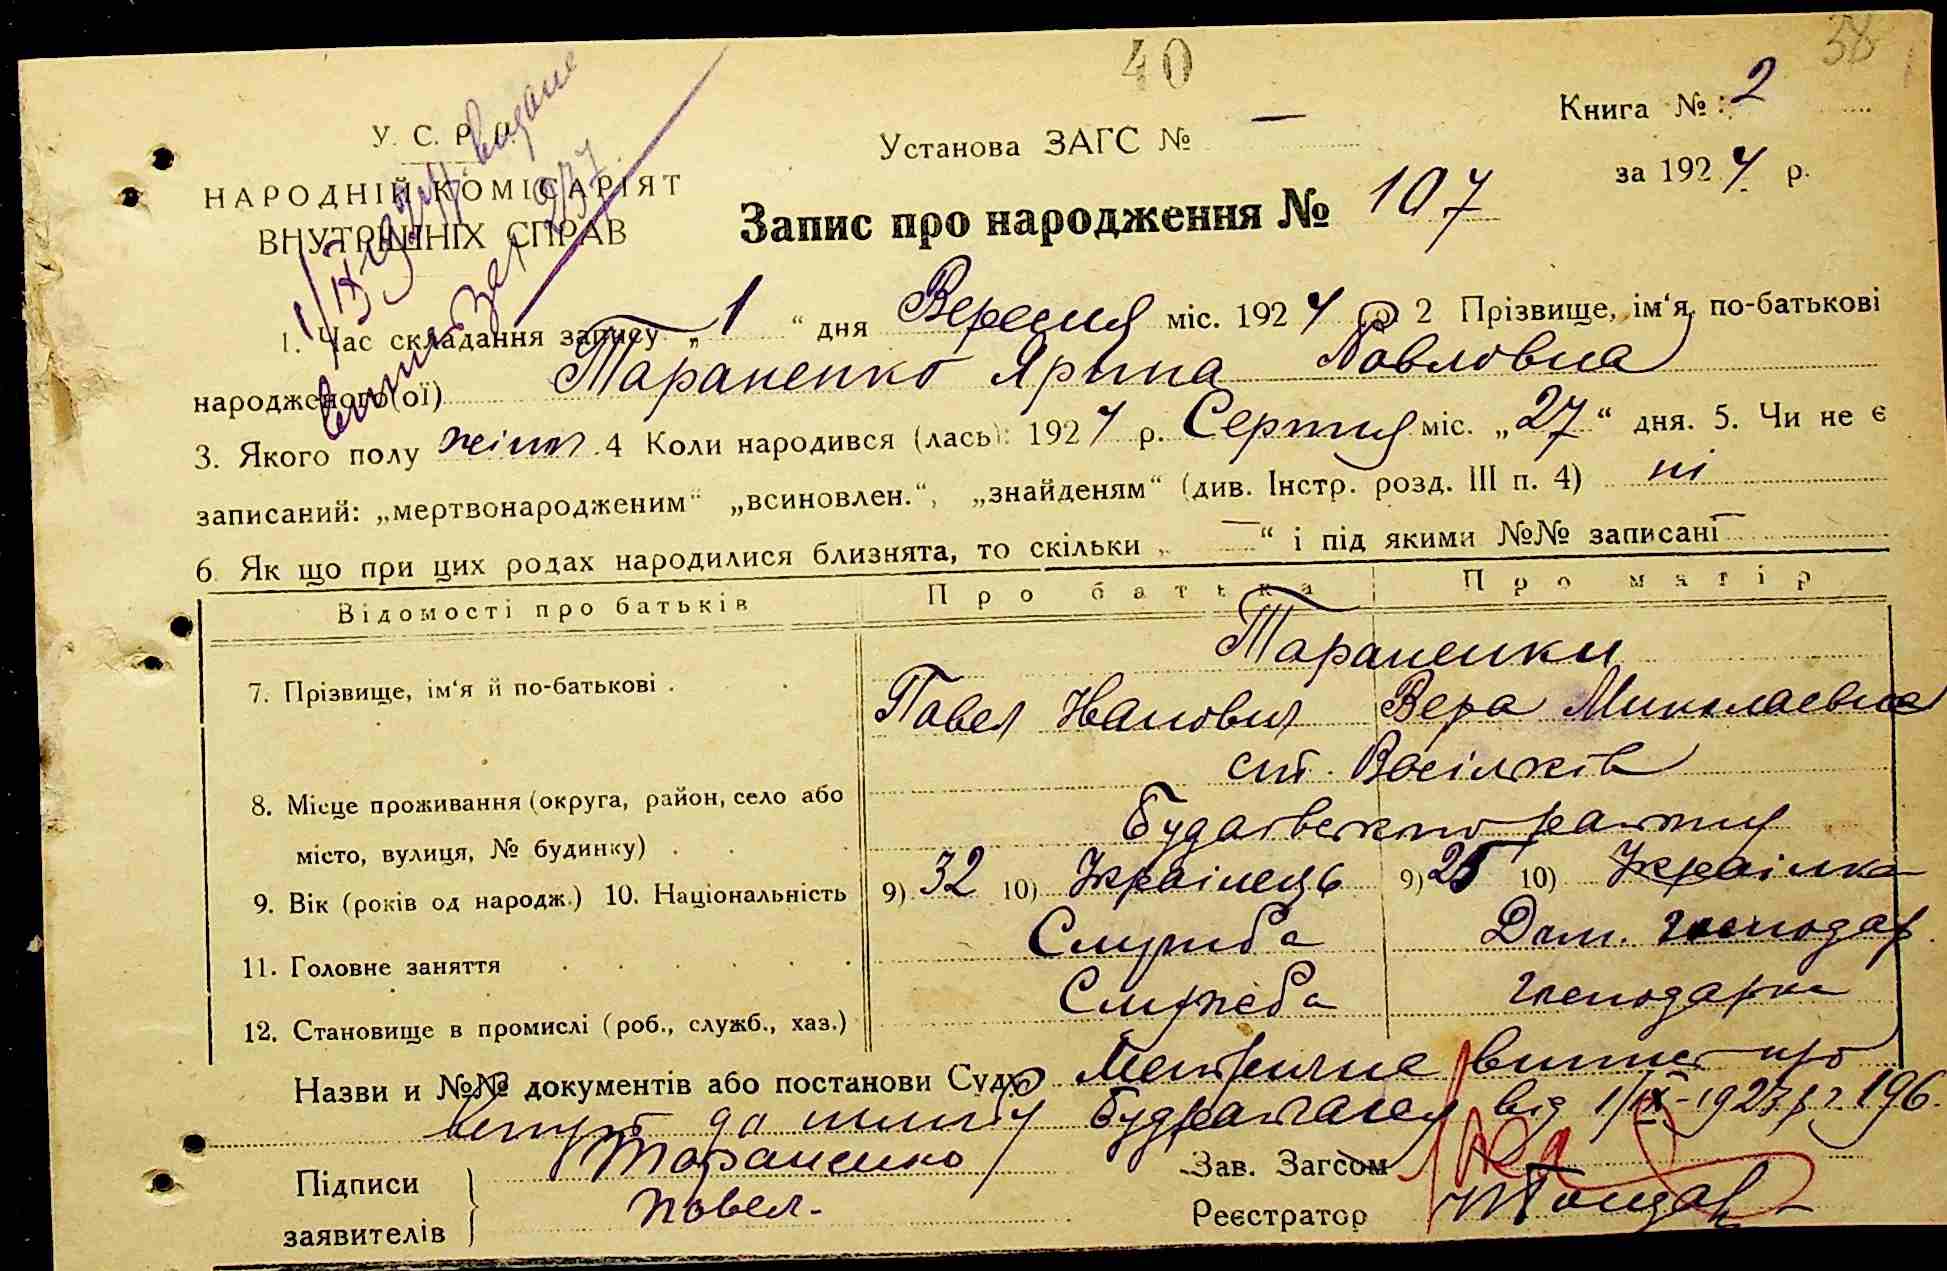 40
38
У. С. Р. Р.
Установа ЗАГС № —
Книга №: 2
НАРОДНІЙ КОМІСАРІЯТ
ВНУТРІШНІХ СПРАВ
за 1924 р.
Запис про народження № 107
видане
1. Час складання запису „1“ дня Вересня міс. 1924 р. 2 Прізвище, ім'я, по-батькові
народженого(ої) Тараненко Ярина Павловна
3. Якого полу жіноч. 4 Коли народився (лась): 1924 р. Серпня міс. „27“ дня. 5. Чи не є
записаний: „мертвонародженим“ „всиновлен.“, „знайденям“ (див. Інстр. розд. III п. 4) ні
6. Як що при цих родах народилися близнята, то скільки „—“ і під якими №№ записані —
Відомості про батьків Про батька Про матір
Тараненки
7. Прізвище, ім'я й по-батькові . Павел Иванович Вера Миколаевна
ст. Васільків
8. Місце проживання (округа, район, село або
місто, вулиця, № будинку) . Будаївського району
9. Вік (років од народж.) 10. Національність 9) 32 10) Украінець 9) 25 10) Украінка
11. Головне заняття Служба Дом. господар
12. Становище в промислі (роб., служб., хаз.) Служба господарка
Назви и №№ документів або постанови Суду Метричне випис про
вступ до шлюбу Будрайзагса від 1/IX-1923 р. 196.
Підписи
заявителів
Тараненко
Павел.
Зав. Загсом
Реєстратор